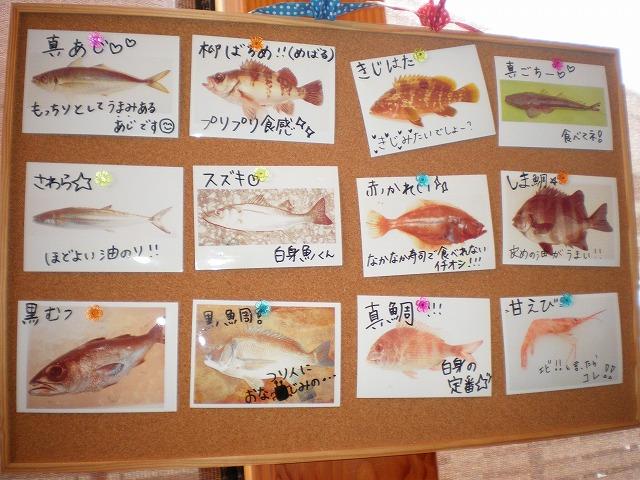 真あじ♡♡
もっちりとしてうまみある
あじです☺
柳ばちめ!!(めばる)
プリプリ食感☆☆
きじはた
きじみたいでしょー?
真ごちー♡♡
食べてネ!
さわら☆
ほどよい油のり!!
スズキ
白身魚くん
赤かれい☆☆
なかなか寿司で食べれない
イチオシ!!!
しま鯛☆
皮めの油がうまい!!
黒むつ
黒鯛
つり人に
おなじみの…
真鯛!!!
白身の
定番☆
甘えび
コレ!!